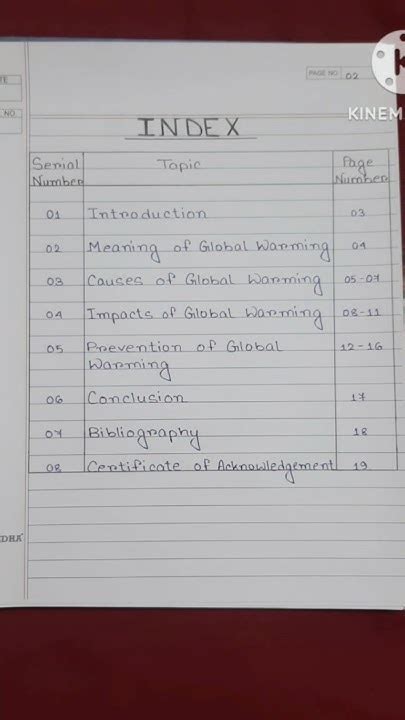 PAGE NO 02
NO.
KINEM
INDEX
Serial Number Topic Page Number
01 Introduction 03
02 Meaning of Global Warming 04
03 Causes of Global Warming 05-07
04 Impacts of Global Warming 08-11
05 Prevention of Global 12-16
Warming
06 Conclusion 17
07 Bibliography 18
08 Certificate of Acknowledgement 19